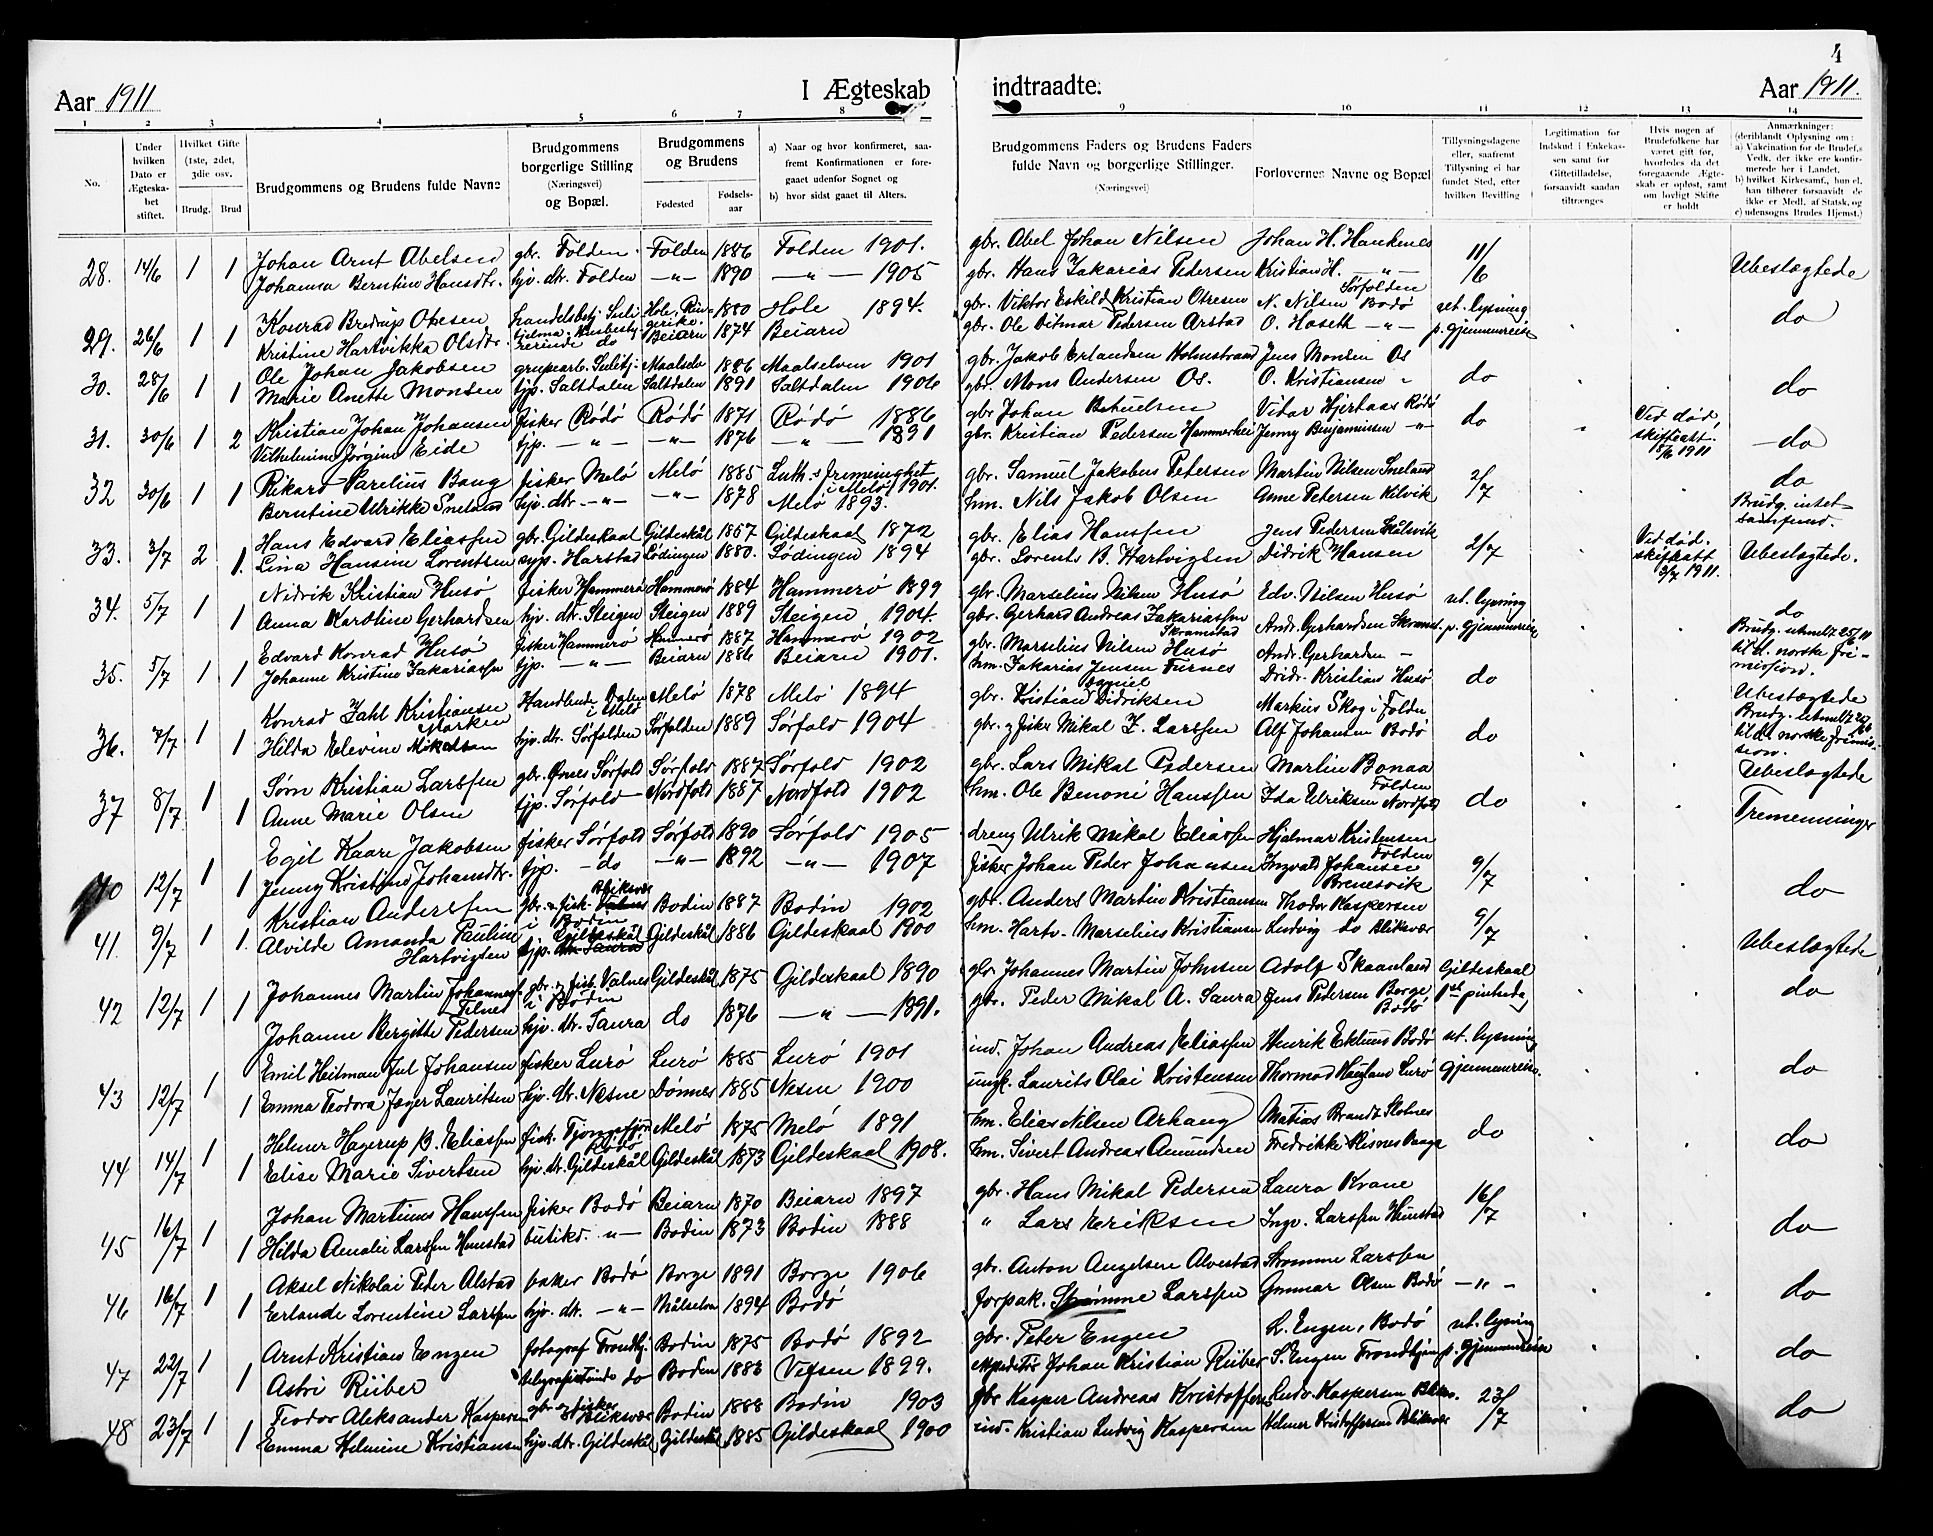 4
Aar 1911
I Ægteskab
indtraadte.
Aar 1911.
1 2 3 4 5 6 7 8 9 10 11 12 13 14
No.
Under hvilken Dato er Ægteskabet stiftet.
Hvilket Gifte (1ste, 2det, 3die osv.
Brudg. Brud
Brudgommens og Brudens fulde Navne
Brudgommens borgerlige Stilling (Næringsvei) og Bopæl.
Brudgommens og Brudens
Fødested
Fødselsaar
a) Naar og hvor konfirmeret, saafremt Konfirmationen er foregaaet udenfor Sognet og
b) hvor sidst gaaet til Alters.
Brudgommens Faders og Brudens Faders fulde Navn og borgerlige Stillinger.
(Næringsvei)
Forlovernes Navne og Bopæl
Tillysningsdagene eller, saafremt Tillysning ei har fundet Sted, efter hvilken Bevilling
Legitimation for Indskud i Enkekassen samt for Giftetilladelse, forsaavidt saadan tiltrænges
Hvis nogen af Brudefolkene har været gift før, hvorledes da det foregaaende Ægteskab er opløst, samt om lovligt Skifte er holdt
Anmærkninger: (deriblandt Oplysning om: a) Vakcination for de Brudef.s Vedk. der ikke ere konfirmerede her i Landet. b) hvilket Kirkesamf., hun el. han tilhører forsaavidt de ikke er Medl. af Statsk. og c) udensogns Brudes Hjemst.)
28. 14/6 1 1 Johan Arnt Abelsen gbr. Folden Folden 1886 Folden 1901. gbr. Abel Johan Nilsen Johan H. Hankenes 11/6 Ubeslægtede
Johanna Berntine Hansdtr. hjv. dtr. Folden -"- 1890 -"- 1905 gbr. Hans Zakarias Pedersen Kristian H. -"- Sørfolden
29. 26/6 1 1 Konrad Bredrup Olsen Hole, Ringerike 1880 Hole 1894. gbr. Viktor Eskild Kristian N. Nilsen Bodø ut. lysning p. gjennemreise do
Kristine Hartvikka Olsdtr. do Beiarn 1874 Beiarn gbr. Ole Ditmar Pedersen Arstad O. Haseth -"-
30. 28/6 1 1 Ole Johan Jakobsen grupearb. Sulitj. Maalselv 1886 Maalselven 1901 gbr. Jakob Erlandsen Holmstrand Jens Monsen Os do do
Marie Anette Monsen tjp. Saltdalen Saltdalen 1891 Saltdalen 1906 gbr. Mons Andersen Os. O. Kristiansen "
31. 30/6 1 2 Kristian Johan Johansen fisker Rødø Rødø 1871 Rødø 1886 gbr Johan Vitar Hjertaas Rødø do Ved død, skifteatt. 15/6 1911 do
Vilhelmine Jørgine Eide tjp. -"- -"- 1876 -"- 1891 gbr. Kristian Pedersen Jenny Benjaminsen -"-
32 30/6 1 1 Rikard Parelius Bang fisker Melø Melø 1885 Luth. frimenighet i Melø 1901. gbr. Samuel Jakobus Petersen Martin Nilsen Sneland 2/7 do
Berntine Ulrikke Sneland hjv. dtr. -"- -"- 1878 Melø 1893. hm. Nils Jakob Olsen Anne Petersen Kilvik
33. 3/7 2 1. Hans Edvard Eliassen gbr. Gildeskaal Gildeskål 1857 Gildeskaal 1872 gbr. Elias Hanssen Jens Pedersen Skålsvik 2/7 Ved død. skifteatt 3/7 1911. Ubeslægtede.
Lina Hansine Lorentsen syp. Harstad Lødingen 1880. Lødingen 1894 gbr. Lorents B. Hartvigsen Didrik Hansen
34. 5/7 1 1 Nidrik Kristian Husø fisker Hammerø Hammerø 1884 Hammerø 1899 gbr. Marselius Nilsen Husø Edv. Nilsen Husø ut. lysning p. gjennemreise do
Anna Karoline Gerhardsen hjv. dtr. Steigen Steigen 1889 Steigen 1904. gbr. Gerhard Andreas Zakariassen Skramstad Andr. Gerhardsen
35. 5/7 1 1 Edvard Konrad Husø fisker Hammerø Hammerø 1887 Hammerø 1902 gbr. Marselius Nilsen Husø Andr. Gerhardsen - do
Johanne Kristine Zakariassen tjp. -"- Beiarn 1886 Beiarn 1901. hm. Zakarias Jensen Furnes Kristian Husø
36. 7/7 1 1 Konrad Zahl Kristiansen i Melø Melø 1878 Melø 1894 gbr. Kristian Daniel Didriksen Markus Skog i Folden do Ubeslægtede
Hilda Elevine Mikalsen hjv. dtr. Sørfolden Sørfolden 1889 Sørfold 1904 gbr. & fisker Mikal Z. Larssen Alf Johansen Bodø
37 8/7 1 1 Sørn Kristian Larssen gbr. Øvnes Sørfold Sørfold 1887 Sørfold 1902 gbr. Lars Mikal Pedersen Martin Bonaa Folden do Ubeslægtede
Anne Marie Olsen tjp. Sørfold Nordfold 1887 Nordfold 1902 hm. Ole Benoni Hanssen Ida Ulriksen Nordfold Tremenninger
40 12/7 1 1 Egil Kaare Jakobsen fisker Sørfold Sørfold 1890 Sørfold 1905 dreng Ulrik Mikal Eliassen Hjalmar Kristensen Folden 9/7 do
Jenny Kristine Johansdtr. tjp. - do -"- 1892 -"- 1907 fisker Johan Peder Johansen Ingvald Johansen
41. 9/7 1 1. Kristian Anderssen gbr. & fisk. Bliksvær i Bodin Bodin 1887 Bodin 1902 gbr. Anders Martin Kristiansen Thodor Kaspersen 9/7 Ubeslægtede
Alvilde Amanda Pauline Hartvigsen tjp. Gildeskål Gildeskål 1886 Gildeskaal 1900 hm. Hartv. Marselius Kristiansen Ludvig do Bliksvær
42 12/7 1 1 Johannes Martin Johannes. gbr. & fisk. Valnes i Bodin Gildeskål 1875 Gildeskaal 1890 gbr. Johannes Martin Johnsen Adolf Skaanland Gildeskaal do
Johanne Bergitte Pedersen hjv. dtr. Saura do 1876 -"- 1891. gbr. Peder Mikal A. Saura Jens Pedersen Borge Bodø
43 12/7 1 1 Emil Heitman Jul Johansen fisker Lurø Lurø 1885 Lurø 1901 ind. Johan Andreas Eliassen Henrik Eklund Bodø ut. lysning gjennemreise do
Emma Teodora Jæger Lauritsen hjv. dtr. Nesne Dønnes 1885 Nesne 1900 ungk. Laurits Olai Kristensen Thormod Lurø
44 14/7 1 1 Helmer Hagerup B. Eliassen fisk. Tjongsfjord Rødø Melø 1875 Melø 1891 hm. Elias Nilsen Arhaug Matias Brandt do do
Elise Marie Sivertsen hjv. dtr. Gildeskål Gildeskål 1873 Gildeskaal 1908. hm. Sivert Andreas Amundsen Fredrikke
45 16/7 1 1 Johan Martinus Hanssen fisker Bodø Beiarn 1870 Beiarn 1897 gbr. Hans Mikal Pedersen Laura Krane 16/7 do
Hilda Amalie Larssen Hunstad butikd. -"- Bodin 1873 Bodin 1888 " Lars Eriksen Ingv. Larssen Hunstad
46 16/7 1 1 Aksel Nikolai Peter Alstad baker Bodø Borge 1891 Borge 1906 gbr. Anton Angelsen Alvestad Strømme Larssen -"- do
Erlande Lorentine Larssen hjv. dtr. -"- Målselven 1894 Bodø forpak. Strømme Larssen Gunnar Olsen Bodø
47 22/7 1 1 Arnt Kristian Engen fotograf Trondhj. Bodin 1875 Bodø 1892 gbr. Peter Engen L. Engen, Bodø ut. lysning p. gjennemreise do
Astri Riiber telegrafistinde do Bodin 1883 Vefsen 1899. ekspeditør Johan Kristian Riiber S. Engen Trondhjem
48 23/7 1 1 Teodor Aleksander Kaspersen gbr. & fisker Bliksvær Bodin 1888 Bodin 1903 gbr Kasper Andreas Kristoffersen Ludv. Kaspersen Bliksv. 23/7 do
Emma Helmine Kristiansen hjv. dtr. Gildeskål Gildeskål 1885 Gildeskaal 1900 ind. Kristian Ludvig Kaspersen Helmer Kristoffersen Bliksvær